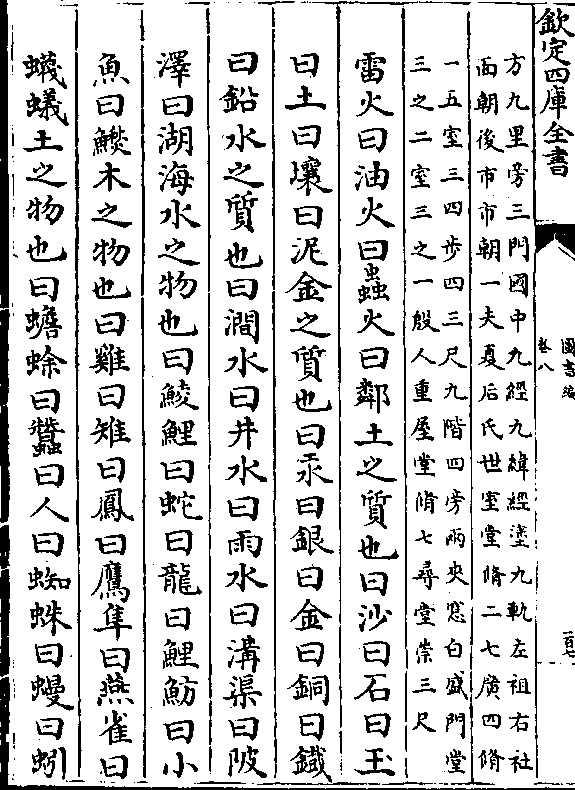 欽定四庫全書
圖書編
卷八
方九里旁三門國中九經九緯經塗九軌左祖右社
面朝後市市朝一夫夏后氏世室堂脩二七廣四脩
一五室三四步四三尺九階四旁兩夾窓白盛門堂
三之二室三之一殷人重屋堂脩七尋堂崇三尺
雷火曰油火曰蟲火曰鄰土之質也曰沙曰石曰玉
曰土曰壤曰泥金之質也曰汞曰銀曰金曰銅曰鐵
曰鉛水之質也曰澗水曰井水曰雨水曰溝渠曰陂
澤曰湖海水之物也曰鯪鯉曰蛇曰龍曰鯉魴曰小
魚曰木之物也曰雞曰雉曰鳳曰鷹隼曰燕雀曰
蠛蟻土之物也曰蟾蜍曰蠶曰人曰蜘蛛曰蟃曰蚓